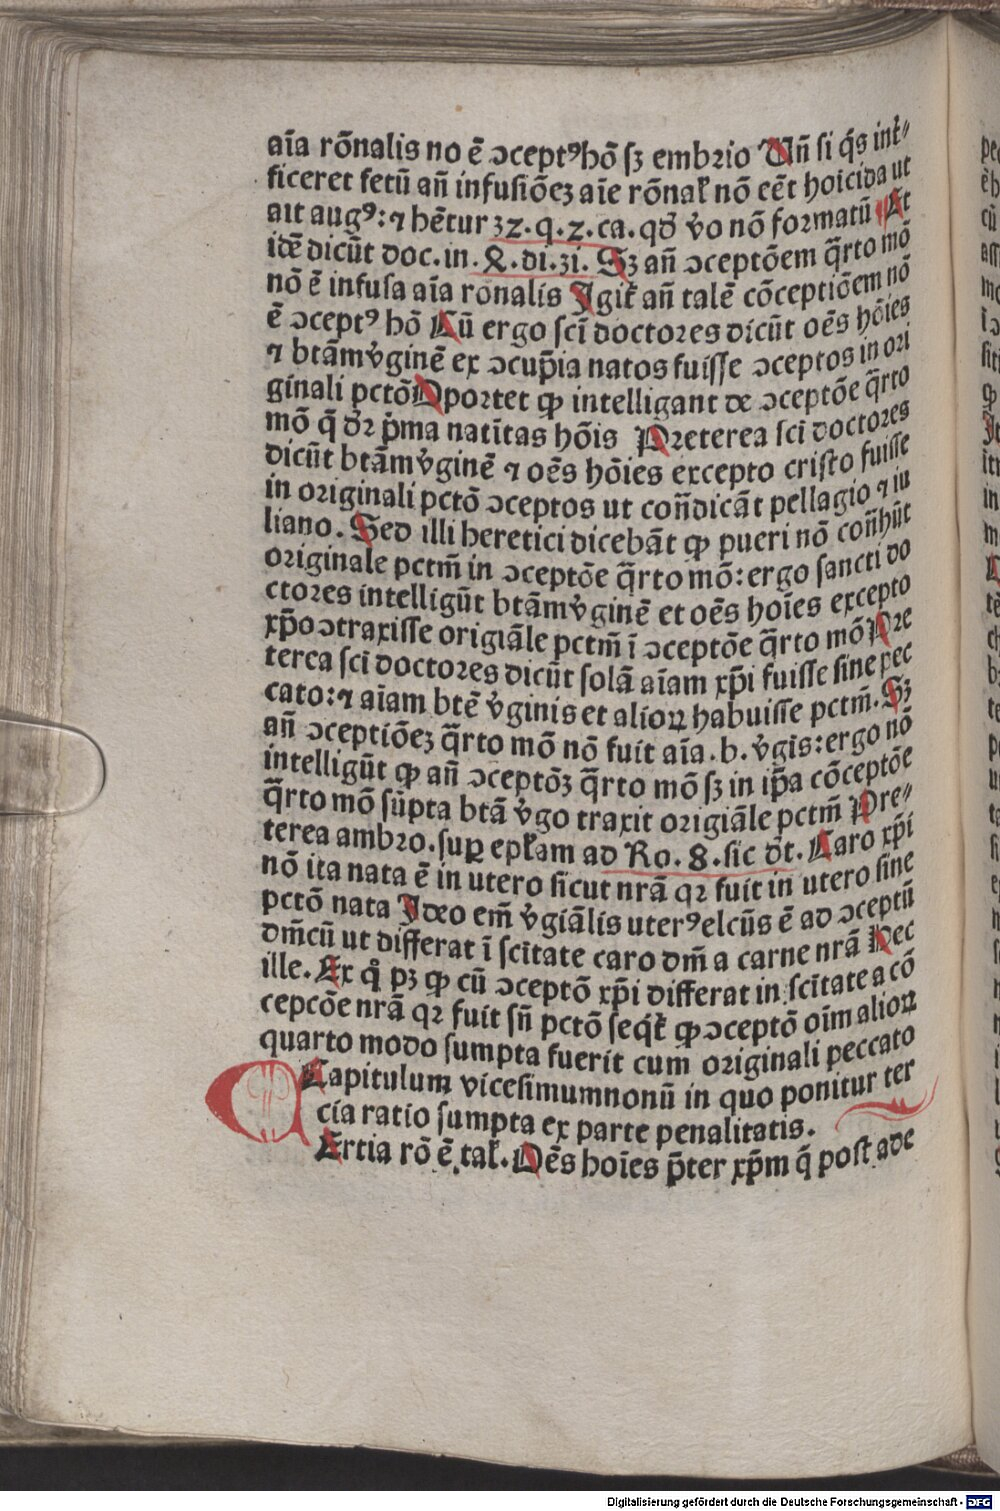 aīa rōnalis no ē ↄceptꝰ hō sꝫ embrio Vñ si q̇s int̄⸗
ficeret fetū añ infusiōeꝫ aīe rōnał nō eēt hoicida ut
ait augꝰ: ⁊ hētur 3z. q. z. ca. qđ v̓o nō formatū Et
idē dicūt doc. in. 8. di. 3i. Sꝫ añ ↄceptōem q̄rto mō
nō ē infusa aīa ronalis Igiť añ talē cōceptiōem nō
ē ↄceptꝰ hō Cū ergo scī doctores dicūt oēs hōies
⁊ btām v̓ginē ex ↄcup̄ia natos fuisse ↄceptos in ori
ginali pctō Oportet ꝙ intelligant de ↄceptōe q̄rto
mō q̄ dr̄ p̓ma natītas hōis Preterea scī doctores
dicūt btām v̓ginē ⁊ oēs hōies excepto cristo fuisse
in originali pctō ↄceptos ut coñdicāt pellagio ⁊ iu
liano. Sed illi heretici dicebāt ꝙ pueri nō coñhūt
originale pctm̄ in ↄceptōe q̄rto mō: ergo sancti do
ctores intelligūt btām v̓ginē et oēs hoīes excepto
xp̄o ↄtraxisse origiāle pctm̄ ī ↄceptōe q̄rto mō Pre
terea scī doctores dicūt solā aīam xp̄i fuisse sine pec
cato: ⁊ aīam btē v̓ginis et alioꝝ habuisse pctm̄. Sꝫ
añ ↄceptiōeꝫ q̄rto mō nō fuit aīa. b. v̓gis: ergo nō
intelligūt ꝙ añ ↄceptōꝫ q̄rto mō sꝫ in ip̄a cōceptōe
q̄rto mō sūpta btā v̓go traxit origiāle pctm̄ Pre⸗
terea ambro. suꝑ epłam ad Ro. 8. sic dt̄. Caro xp̄i
nō ita nata ē in utero sicut nrā qꝛ fuit in utero sine
pctō nata Ideo em̄ v̓giālis uterꝰ elcūs ē ad ↄceptū
dm̄cū ut differat ī scītate caro dm̄ a carne nrā Hec
ille. Ex qͦ pꝫ ꝙ cū ↄceptō xp̄i differat in scītate a cō
cepcōe nrā qꝛ fuit sñ pctō seq́ť ꝙ ↄceptō oīm alioꝝ
quarto modo sumpta fuerit cum originali peccato
Capitulum vicesimumnonū in quo ponitur ter
cia ratio sumpta ex parte penalitatis.
Ertia rō ē tał. Oēs hoīes p̄ter xp̄m q̇ post ade
Digitalisierung gefördert durch die Deutsche Forschungsgemeinschaft - DFG